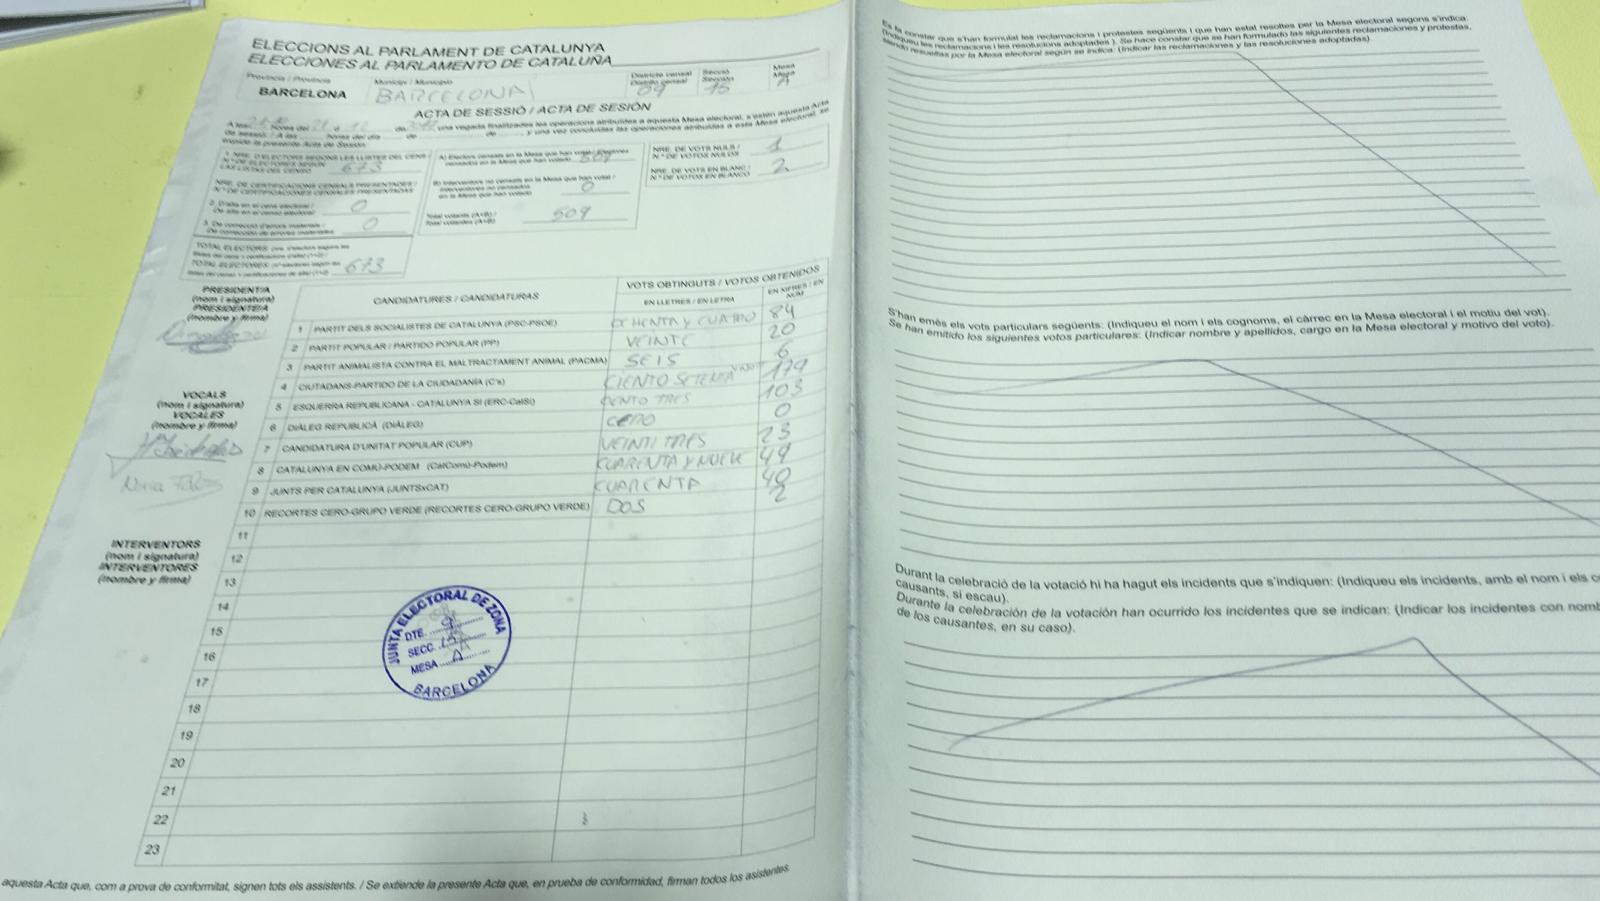 ELECCIONS AL PARLAMENT DE CATALUNYA
ELECCIONES AL PARLAMENTO DE CATALUÑA
Província / Provincia Municipi / Municipio Districte censal Secció Mesa
Distrito censal Sección Mesa
BARCELONA BARCELONA 09 15 A
ACTA DE SESSIÓ / ACTA DE SESIÓN
hores del de una vegada finalitzades les operacions atribuïdes a aquesta Mesa electoral, s'estén aquesta Acta
de sessió. / A las horas del día de de y una vez concluidas las operaciones atribuidas a esta Mesa electoral, se
expide la presente Acta de Sesión.
1. NRE. D'ELECTORS SEGONS LES LLISTES DEL CENS /
N.º DE ELECTORES SEGÚN
LAS LISTAS DEL CENSO 673
NRE. DE CERTIFICACIONS CENSALS PRESENTADES /
N.º DE CERTIFICACIONES CENSALES PRESENTADAS
2. D'alta en el cens electoral /
De alta en el censo electoral 0
3. De correcció d'errors materials /
De corrección de errores materiales 0
TOTAL ELECTORS
TOTAL ELECTORES 673
A) Electors censats en la Mesa que han votat / Electores
censados en la Mesa que han votado
B) Interventors no censats en la Mesa que han votat /
Interventores no censados
en la Mesa que han votado 0
Total votants (A+B) /
Total votantes (A+B) 509
NRE. DE VOTS NULS /
N.º DE VOTOS NULOS 1
NRE. DE VOTS EN BLANC /
N.º DE VOTOS EN BLANCO 2
PRESIDENT/A
(nom i signatura)
PRESIDENTE/A
(nombre y firma)
VOCALS
(nom i signatura)
VOCALES
(nombre y firma)
INTERVENTORS
(nom i signatura)
INTERVENTORES
(nombre y firma)
CANDIDATURES / CANDIDATURAS VOTS OBTINGUTS / VOTOS OBTENIDOS
EN LLETRES / EN LETRA EN XIFRES / EN NÚM
1 PARTIT DELS SOCIALISTES DE CATALUNYA (PSC-PSOE) OCHENTA Y CUATRO 84
2 PARTIT POPULAR / PARTIDO POPULAR (PP) VEINTE 20
3 PARTIT ANIMALISTA CONTRA EL MALTRACTAMENT ANIMAL (PACMA) SEIS 6
4 CIUTADANS-PARTIDO DE LA CIUDADANÍA (C's) CIENTO SETENTA 179
5 ESQUERRA REPUBLICANA - CATALUNYA SÍ (ERC-CatSí) CIENTO TRES 103
6 DIÀLEG REPUBLICÀ (DIÀLEG) CERO 0
7 CANDIDATURA D'UNITAT POPULAR (CUP) VEINTI TRES 23
8 CATALUNYA EN COMÚ-PODEM (CatComú-Podem) CUARENTA Y NUEVE 49
9 JUNTS PER CATALUNYA (JUNTSxCAT) CUARENTA 40
10 RECORTES CERO-GRUPO VERDE (RECORTES CERO-GRUPO VERDE) DOS 2
11
12
13
14
15
16
17
18
19
20
21
22
23
JUNTA ELECTORAL DE ZONA
DTE. 9
SECC. 15
MESA A
BARCELONA
aquesta Acta que, com a prova de conformitat, signen tots els assistents. / Se extiende la presente Acta que, en prueba de conformidad, firman todos los asistentes.
Es fa constar que s'han formulat les reclamacions i protestes següents i que han estat resoltes per la Mesa electoral segons s'indica:
(Indiqueu les reclamacions i les resolucions adoptades). Se hace constar que se han formulado las siguientes reclamaciones y protestas,
siendo resueltas por la Mesa electoral según se indica: (Indicar las reclamaciones y las resoluciones adoptadas).
S'han emès els vots particulars següents: (Indiqueu el nom i els cognoms, el càrrec en la Mesa electoral i el motiu del vot).
Se han emitido los siguientes votos particulares: (Indicar nombre y apellidos, cargo en la Mesa electoral y motivo del voto).
Durant la celebració de la votació hi ha hagut els incidents que s'indiquen: (Indiqueu els incidents, amb el nom i els
causants, si escau).
Durante la celebración de la votación han ocurrido los incidentes que se indican: (Indicar los incidentes con
de los causantes, en su caso).